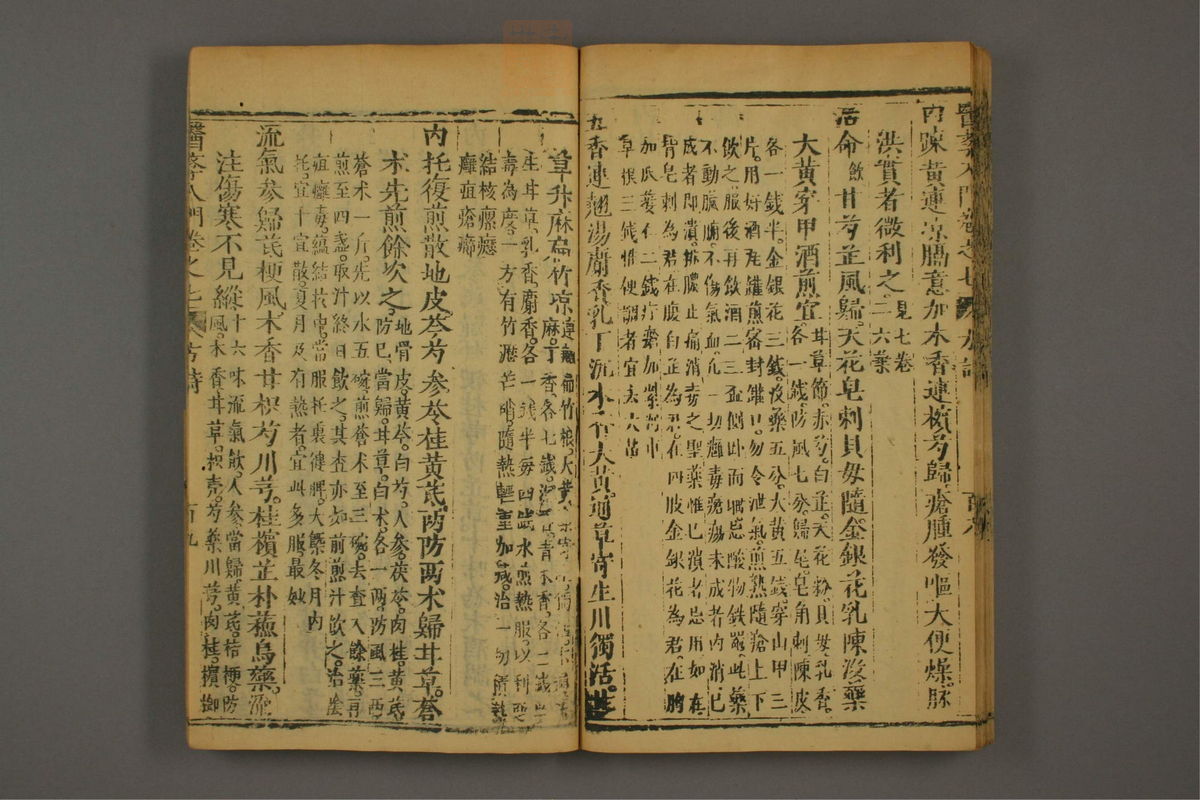 內疎黃連涼膈意加木香連檳芍歸瘡腫發嘔大便燥脉
洪實者微利之見七卷二六葉
活命飲甘芍芷風歸天花皂刺貝母隨金銀花乳陳沒藥
大黃穿甲酒煎宜甘草節赤芍白芷天花粉貝母乳香
各一錢防風七分歸尾皂角刺陳皮
各一錢半金銀花三錢沒藥五分大黃五錢穿山甲三
片用好酒瓶罐煎密封罐口勿令泄氣煎熟隨瘡上下
飲之服後再飲酒二三盃側卧而睡忌酸物鐵器此藥
不動臟腑不傷氣血凡一切癰毒瘡瘍未成者內消已
成者即潰排膿止痛消毒之聖藥惟已潰者忌用如在
背皂刺為君在腹白芷為君在四肢金銀花為君在胸
加瓜蔞仁二錢疔瘡加紫河車
草根三錢惟便調者宜去大黃
五香連翹湯麝香乳丁沉木香大黃通草寄生川獨活
草升麻烏竹凉連翹扁竹根大黃
麻丁香各七錢青木香各二錢
生甘草乳香麝香各一錢半每四錢水煎熱服以利惡
毒為度一方有竹瀝芒硝隨熱輕重加减治一切積熱
結核瘰癧
癰疽瘡癤
內托復煎散地皮芩芍參苓桂黃芪防防两术歸甘草蒼
术先煎餘次之地骨皮黃芩白芍人參茯苓肉桂黃芪
防已當歸甘草白术各一兩防風三两
蒼术一斤先以水五碗煎蒼术至三碗去査入餘藥再
煎至四盞取汁終日飲之其査亦如前煎汁飲之治陰
疽癰毒蘊結於中當服托裏健脾大槩冬月內
托宜十宣散夏月及有熱者宜此多服最妙
流氣參歸芪梗風木香甘枳芍川芎桂檳芷朴蘇烏藥流
注傷寒不見縱十六味流氣飲人參當歸黃芪桔梗防
風木香甘草枳壳芍藥川芎肉桂檳榔
醫學入門卷之七